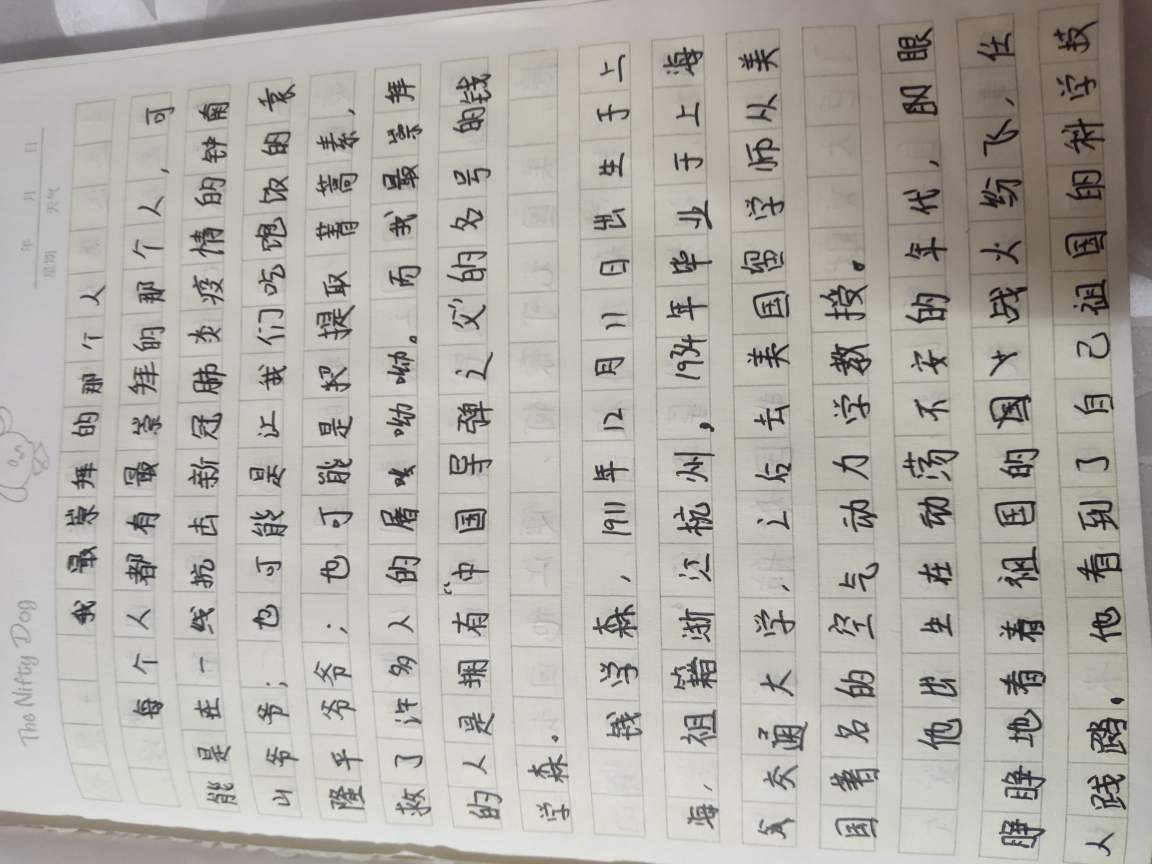 The Nifty Dog
年 月 日
星期 天气
我最崇拜的那个人
每个人都有最崇拜的那个人,可
能是在一线抗击新冠肺炎疫情的钟南
山爷爷;也可能是让我们吃饱饭的袁
隆平爷爷;也可能是把提取菁蒿素,
救了许多人的屠呦呦呦。而我最崇拜
的人是拥有“中国导弹之父”的名号的钱
学森。
钱学森,1911年12月11日出生于上
海,祖籍浙江杭州,1934年毕业于上海
交通大学,之后去美国留学师从美
国著名的空气动力学教授。
他出生在动荡不安的年代,眼
睁睁地看着祖国的国火战火纷飞,任
人践踏。他看到了自己祖国的科学技